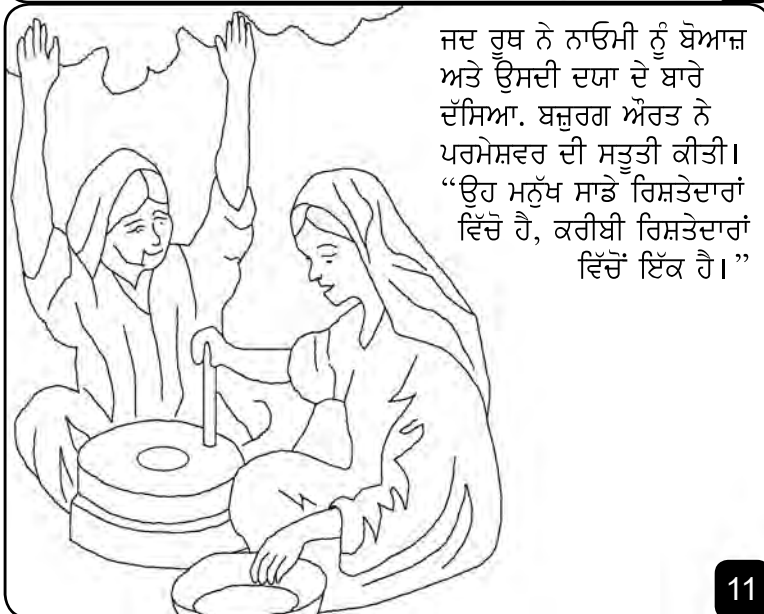 ਜਦ ਰੂਥ ਨੇ ਨਾਓਮੀ ਨੂੰ ਬੋਆਜ਼
ਅਤੇ ਉਸਦੀ ਦਯਾ ਦੇ ਬਾਰੇ
ਦੱਸਿਆ. ਬਜ਼ੁਰਗ ਔਰਤ ਨੇ
ਪਰਮੇਸ਼ਵਰ ਦੀ ਸਤੂਤੀ ਕੀਤੀ।
“ਉਹ ਮਨੁੱਖ ਸਾਡੇ ਰਿਸ਼ਤੇਦਾਰਾਂ
ਵਿੱਚੋ ਹੈ, ਕਰੀਬੀ ਰਿਸ਼ਤੇਦਾਰਾਂ
ਵਿੱਚੋਂ ਇੱਕ ਹੈ।”
11